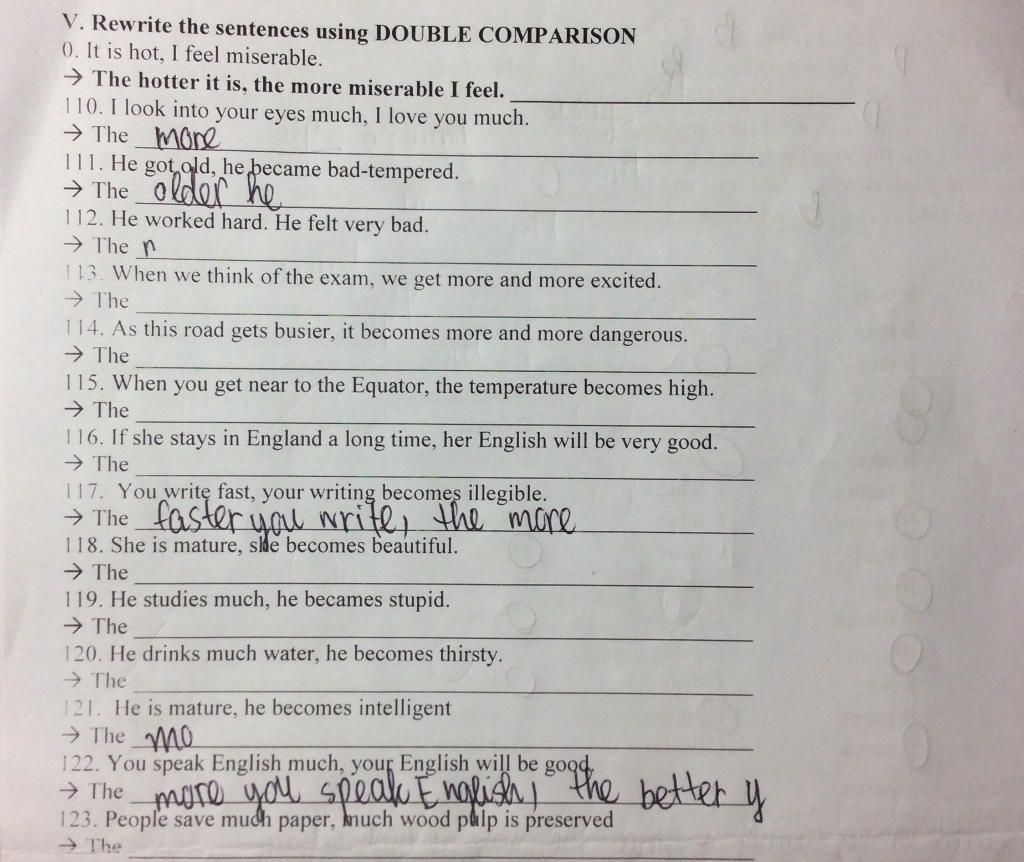 V. Rewrite the sentences using DOUBLE COMPARISON
0. It is hot, I feel miserable.
→ The hotter it is, the more miserable I feel.
110. I look into your eyes much, I love you much.
→ The more
111. He got old, he became bad-tempered.
→ The older he
112. He worked hard. He felt very bad.
→ The n
113. When we think of the exam, we get more and more excited.
→ The
114. As this road gets busier, it becomes more and more dangerous.
→ The
115. When you get near to the Equator, the temperature becomes high.
→ The
116. If she stays in England a long time, her English will be very good.
→ The
117. You write fast, your writing becomes illegible.
→ The faster you write, the more
118. She is mature, she becomes beautiful.
→ The
119. He studies much, he becames stupid.
→ The
120. He drinks much water, he becomes thirsty.
→ The
121. He is mature, he becomes intelligent
→ The mo
122. You speak English much, your English will be good.
→ The more you speak English, the better y
123. People save much paper, much wood pulp is preserved
→ The